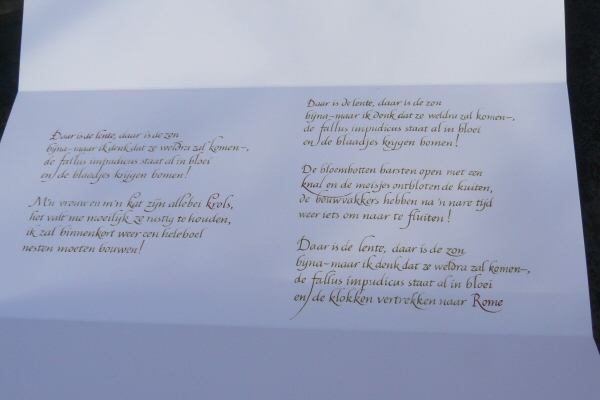 Daar is de lente, daar is de zon
bijna-maar ik denk dat ze weldra zal komen-,
de fallus impudicus staat al in bloei
en de blaadjes krijgen bomen!
M'n vrouw en m'n kat zijn allebei krols,
het valt me moeilijk ze rustig te houden,
ik zal binnenkort weer een heleboel
nesten moeten bouwen!
Daar is de lente, daar is de zon
bijna-maar ik denk dat ze weldra zal komen-,
de fallus impudicus staat al in bloei
en de blaadjes krijgen bomen!
De bloembotten barsten open met een
knal en de meisjes ontbloten de kuiten,
de bouwvakkers hebben na 'n nare tijd
weer iets om naar te fluiten!
Daar is de lente, daar is de zon
bijna-maar ik denk dat ze weldra zal komen-,
de fallus impudicus staat al in bloei
en de klokken vertrekken naar Rome